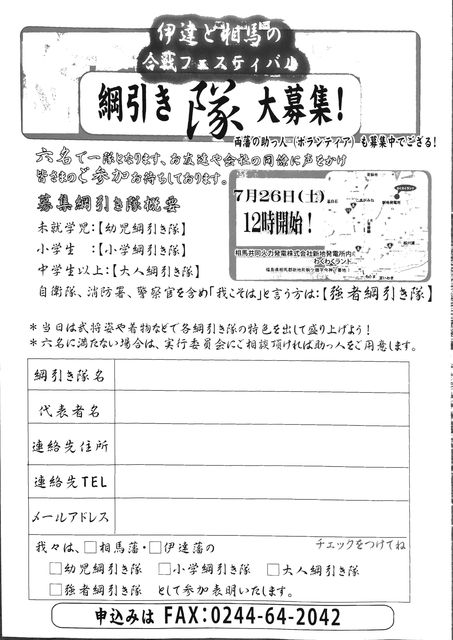 伊達と相馬の
合戦フェスティバル
綱引き隊大募集!
両藩の助っ人(ボランティア)も募集中でござる!
六名で一隊となります、お友達や会社の同僚に声をかけ
皆さまのご参加お待ちしております。
募集綱引き隊概要
7月26日(土)
12時開始!
相馬共同火力発電株式会社新地発電所内
わくわくランド
未就学児:【幼児綱引き隊】
小学生 :【小学綱引き隊】
中学生以上:【大人綱引き隊】
自衛隊、消防署、警察官を含め「我こそは」と言う方は:【強者綱引き隊】
*当日は武将姿や着物などで各綱引き隊の特色を出して盛り上げよう!
*六名に満たない場合は、実行委員会にご相談頂ければ助っ人をご用意します。
綱引き隊名
代表者名
連絡先住所
連絡先TEL
メールアドレス
我々は、□相馬藩・□伊達藩の
チェックをつけてね
□幼児綱引き隊 □小学綱引き隊 □大人綱引き隊
□強者綱引き隊 として参加表明いたします。
申込みは FAX:0244-64-2042